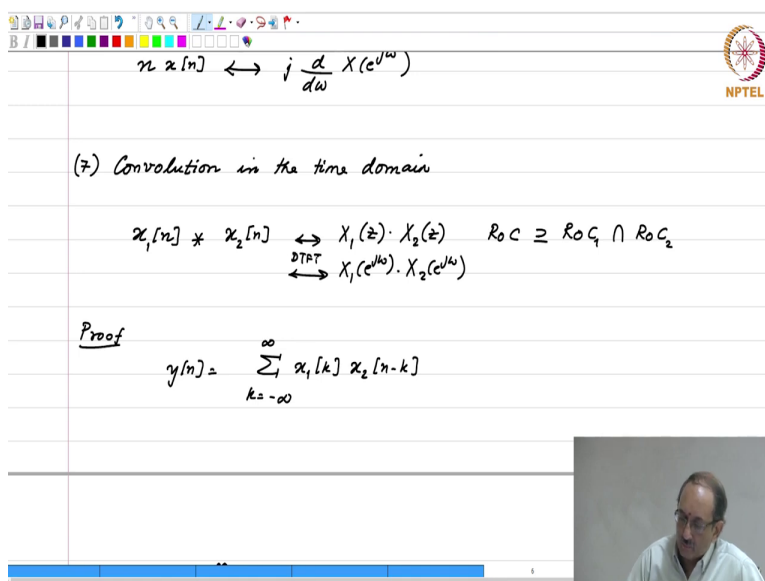 B I
NPTEL
n x[n] ↔ j d/dω X(e^{jω})
(7) Convolution in the time domain
x₁[n] * x₂[n] ↔ X₁(z)·X₂(z) RoC ⊇ RoC₁ ∩ RoC₂
DTFT
↔ X₁(e^{jω})·X₂(e^{jω})
Proof
y[n] = ∑_{k=-∞}^{∞} x₁[k] x₂[n-k]
6